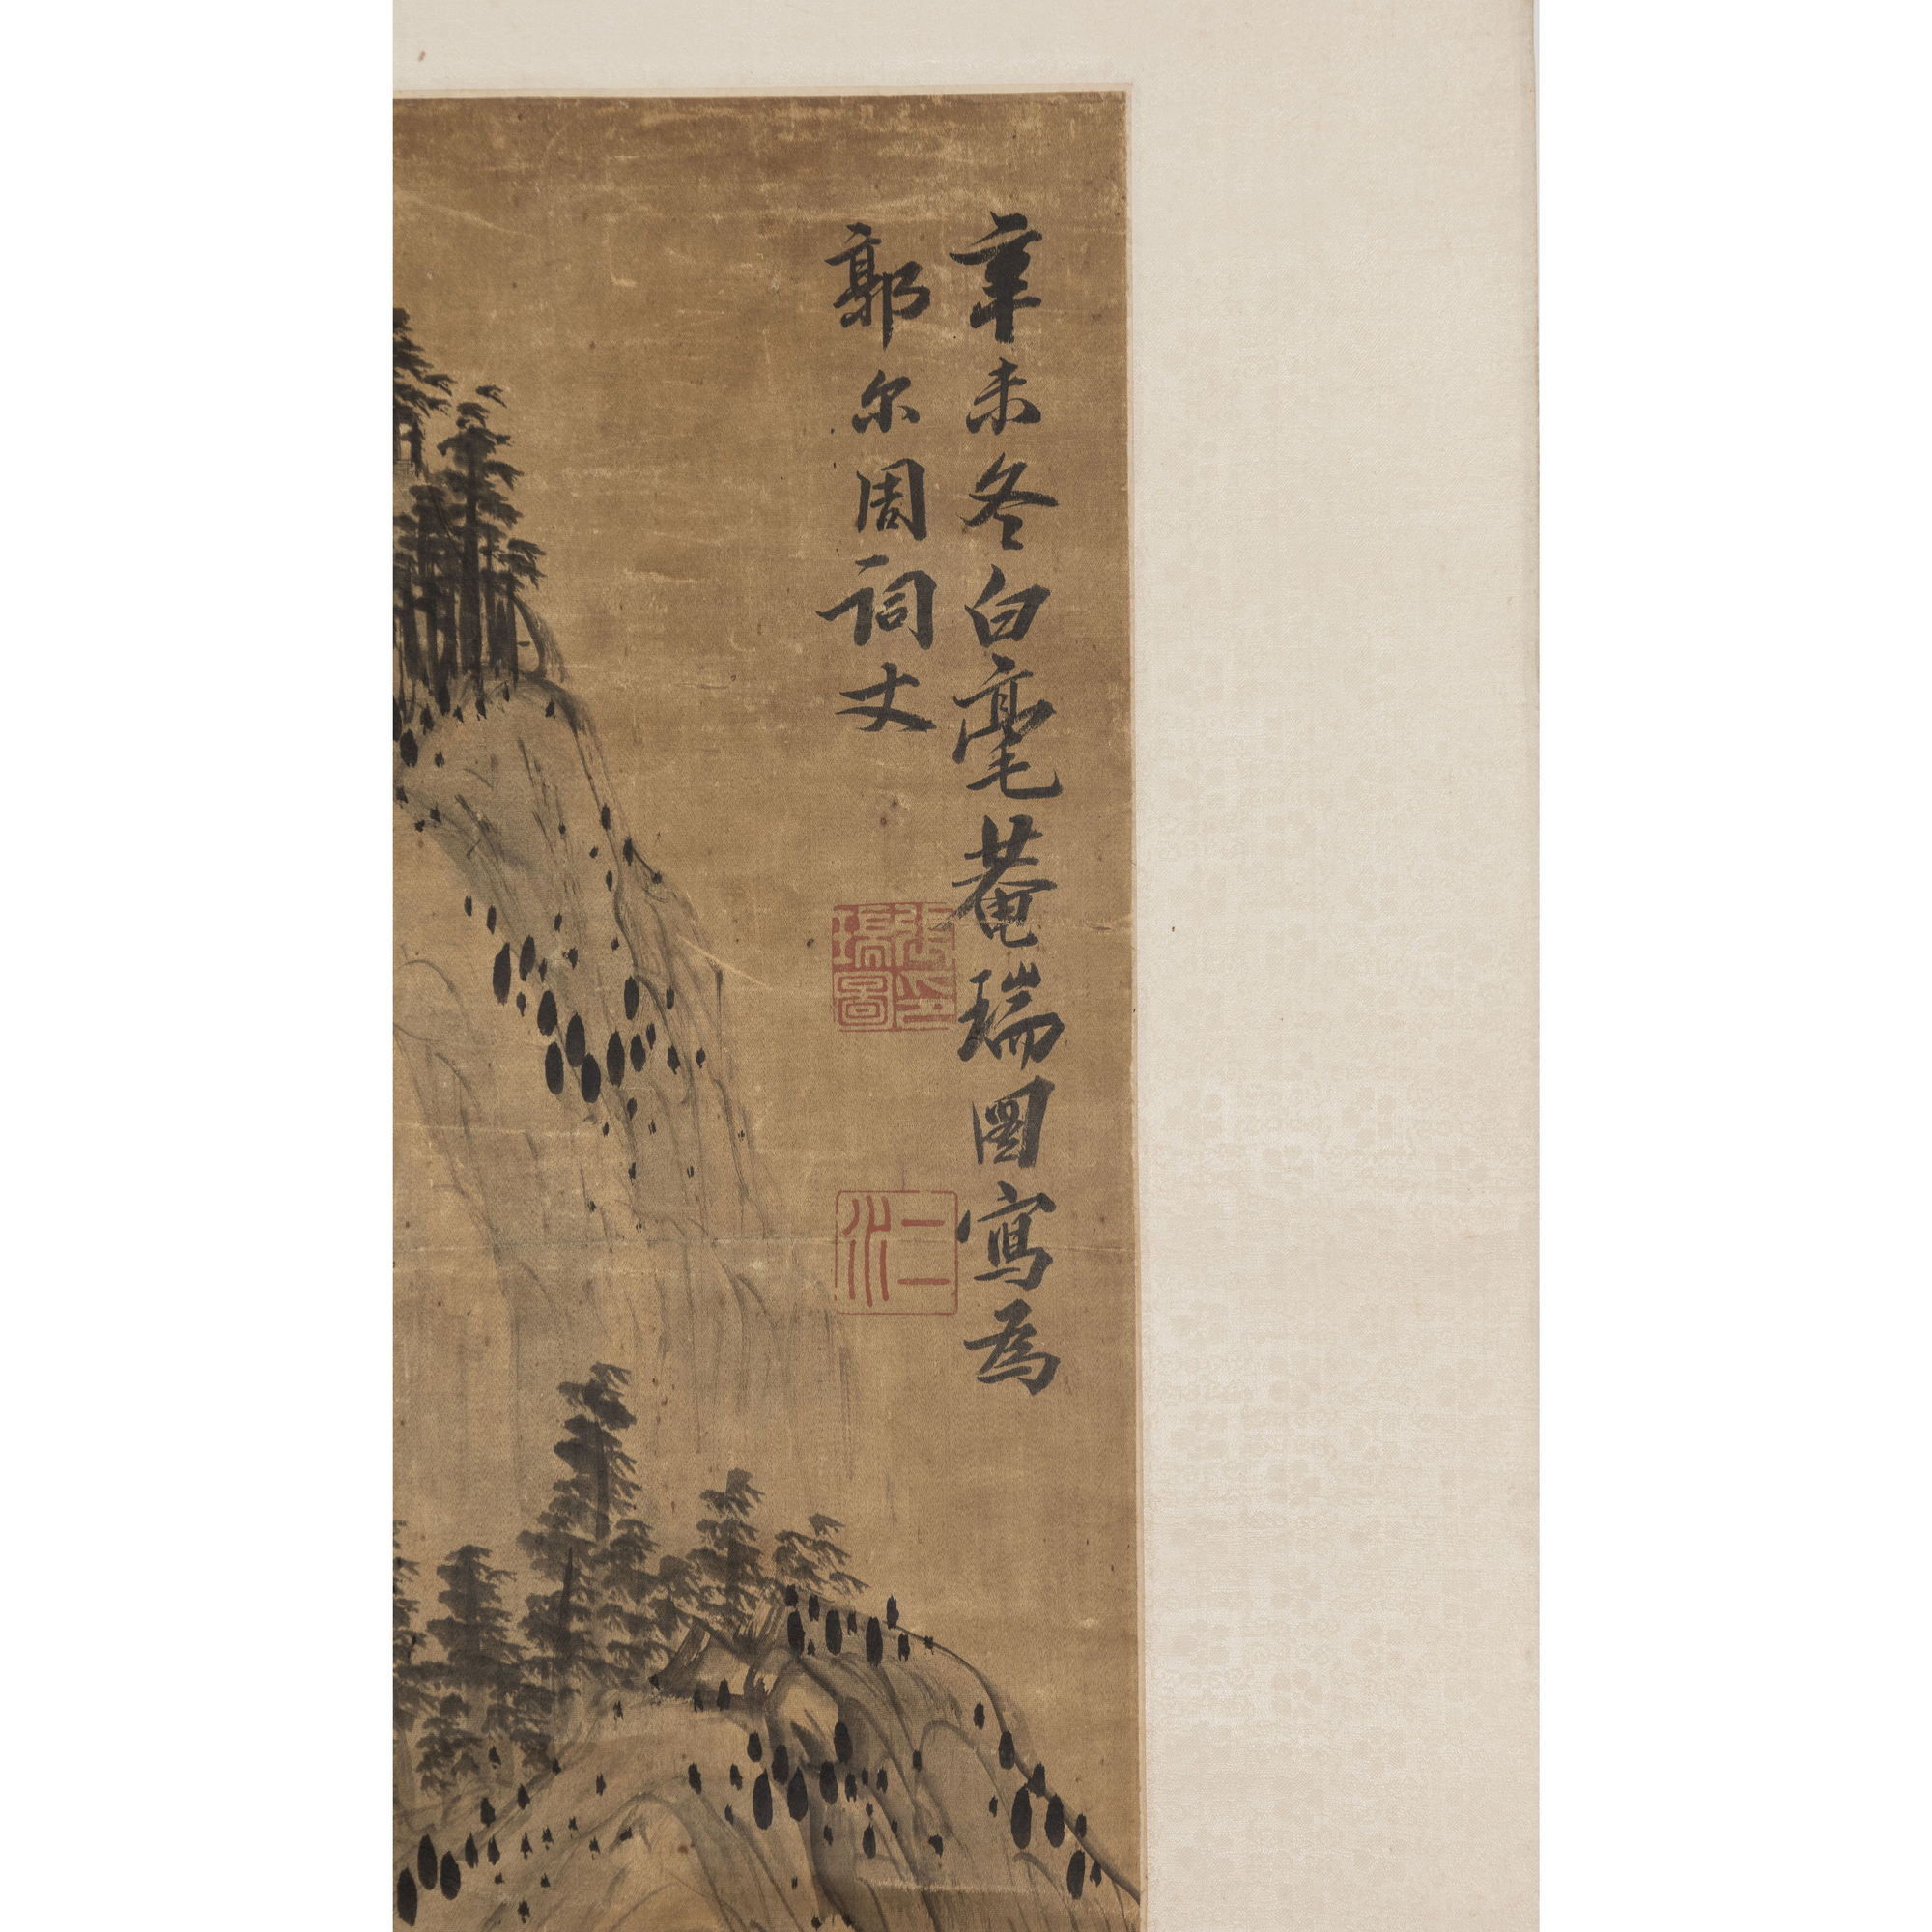 辛未冬白毫菴瑞图寫為
郭尔周词丈
張瑞圖印
二水